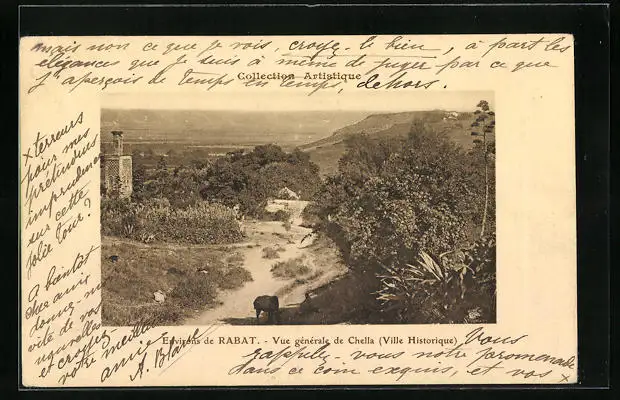 mais non ce que je vois, croyez-le bien, à part les
élégances que je suis à même de juger par ce que
j'aperçois de temps en temps, dehors.
Collection Artistique
Environs de RABAT. - Vue générale de Chella (Ville Historique)
Vous
rappelez-vous notre promenade
dans ce coin exquis, et vos x
x terreurs
pour mes
prétendues
imprudences
sur cette
jolie tour?
A bientôt
chère amie,
donnez-moi
vite de vos
nouvelles
et croyez-
votre meilleure
amie.
A. Blanc